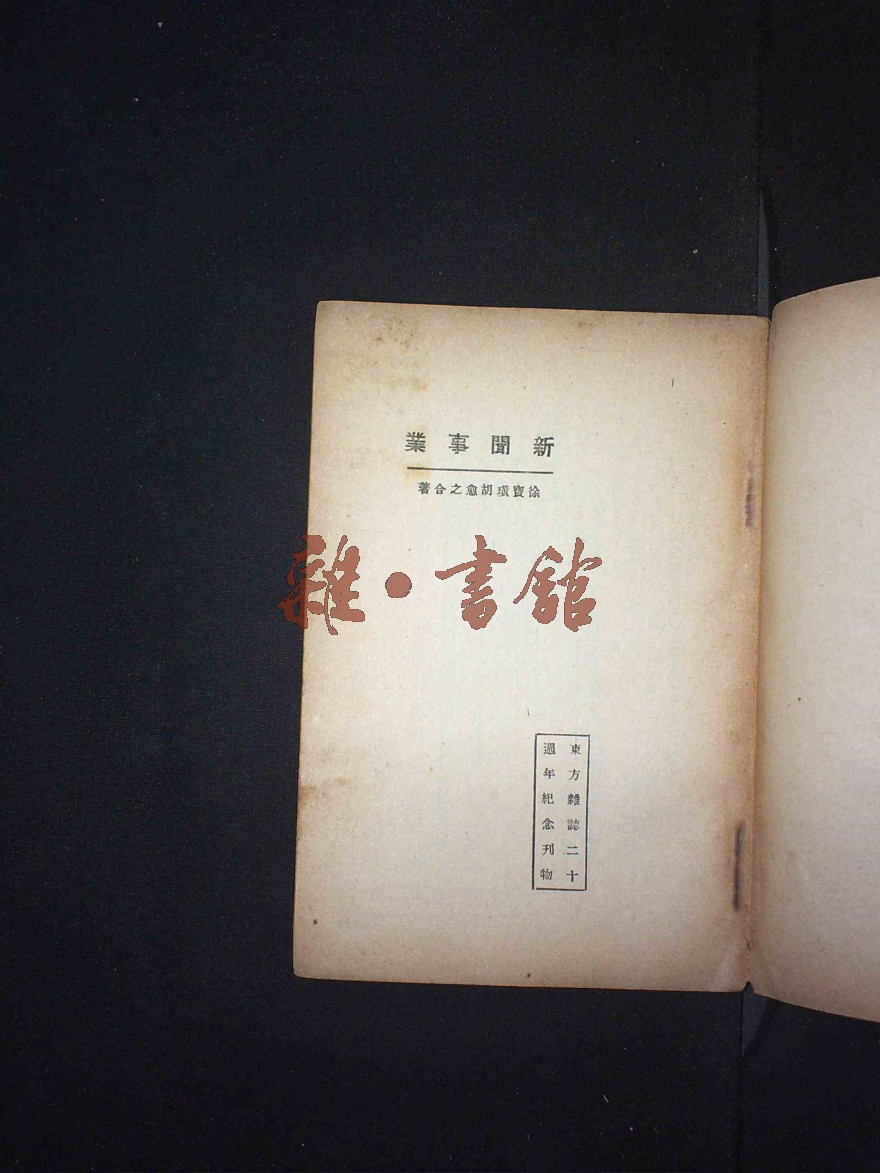 新聞事業
徐寶璜胡愈之合著
雜·書館
東方雜誌二十
週年紀念刊物